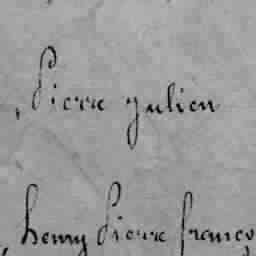 , Pierre Julien
, henry Pierre françoy